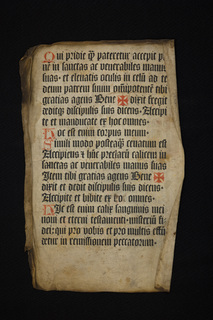 Qui pridie q̄ pateretur accepit pa
nē in sanctas ac venerabiles manus
suas. et eleuatis oculis in celū ad te
deum patrem suum om̄ipotentē tibi
gratias agens Bene ✠ dixit fregit
deditq discipulis suis dicens. Accipi
te et manducate ex hoc omnes.
Hoc est enim corpus meum.
Simili modo posteaq̄ cenatum est
Accipiens et hūc preclarū calicem in
sanctas ac venerabiles manus suas
Item tibi gratias agens Bene ✠
dixit et dedit discipulis suis dicens.
Accipite et bibite ex eo. omnes.
Hic est enim calix sanguinis mei
noui et eterni testamenti. misteriū fi
dei: qui pro vobis et pro multis effū
detur in remissionem peccatorum.